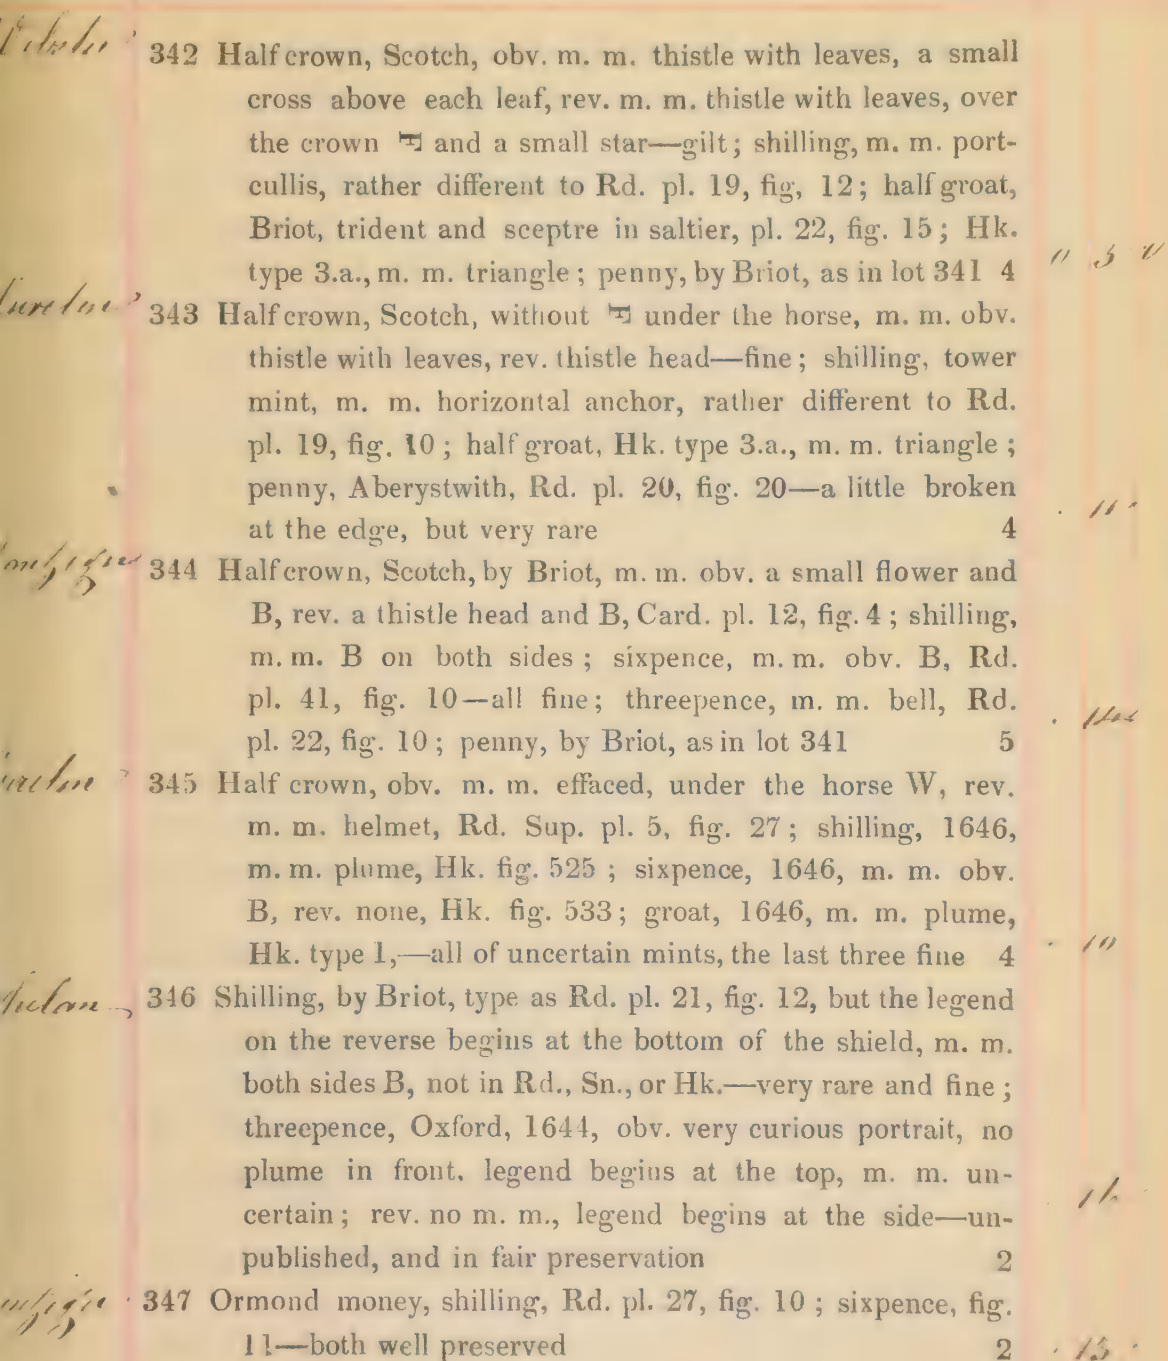 342 Half crown, Scotch, obv. m. m. thistle with leaves, a small
cross above each leaf, rev. m. m. thistle with leaves, over
the crown and a small star—gilt; shilling, m. m. port-
cullis, rather different to Rd. pl. 19, fig, 12; half groat,
Briot, trident and sceptre in saltier, pl. 22, fig. 15; Hk.
type 3.a., m. m. triangle; penny, by Briot, as in lot 341 4
343 Half crown, Scotch, without under the horse, m. m. obv.
thistle with leaves, rev. thistle head—fine; shilling, tower
mint, m. m. horizontal anchor, rather different to Rd.
pl. 19, fig. 10; half groat, Hk. type 3.a., m. m. triangle;
penny, Aberystwith, Rd. pl. 20, fig. 20—a little broken
at the edge, but very rare 4 11
344 Half crown, Scotch, by Briot, m. m. obv. a small flower and
B, rev. a thistle head and B, Card. pl. 12, fig. 4; shilling,
m. m. B on both sides; sixpence, m. m. obv. B, Rd.
pl. 41, fig. 10—all fine; threepence, m. m. bell, Rd.
pl. 22, fig. 10; penny, by Briot, as in lot 341 5
345 Half crown, obv. m. m. effaced, under the horse W, rev.
m. m. helmet, Rd. Sup. pl. 5, fig. 27; shilling, 1646,
m. m. plume, Hk. fig. 525; sixpence, 1646, m. m. obv.
B, rev. none, Hk. fig. 533; groat, 1646, m. m. plume,
Hk. type 1,—all of uncertain mints, the last three fine 4 10
346 Shilling, by Briot, type as Rd. pl. 21, fig. 12, but the legend
on the reverse begins at the bottom of the shield, m. m.
both sides B, not in Rd., Sn., or Hk.—very rare and fine;
threepence, Oxford, 1644, obv. very curious portrait, no
plume in front, legend begins at the top, m. m. un-
certain; rev. no m. m., legend begins at the side—un-
published, and in fair preservation 2
347 Ormond money, shilling, Rd. pl. 27, fig. 10; sixpence, fig.
11—both well preserved 2 13